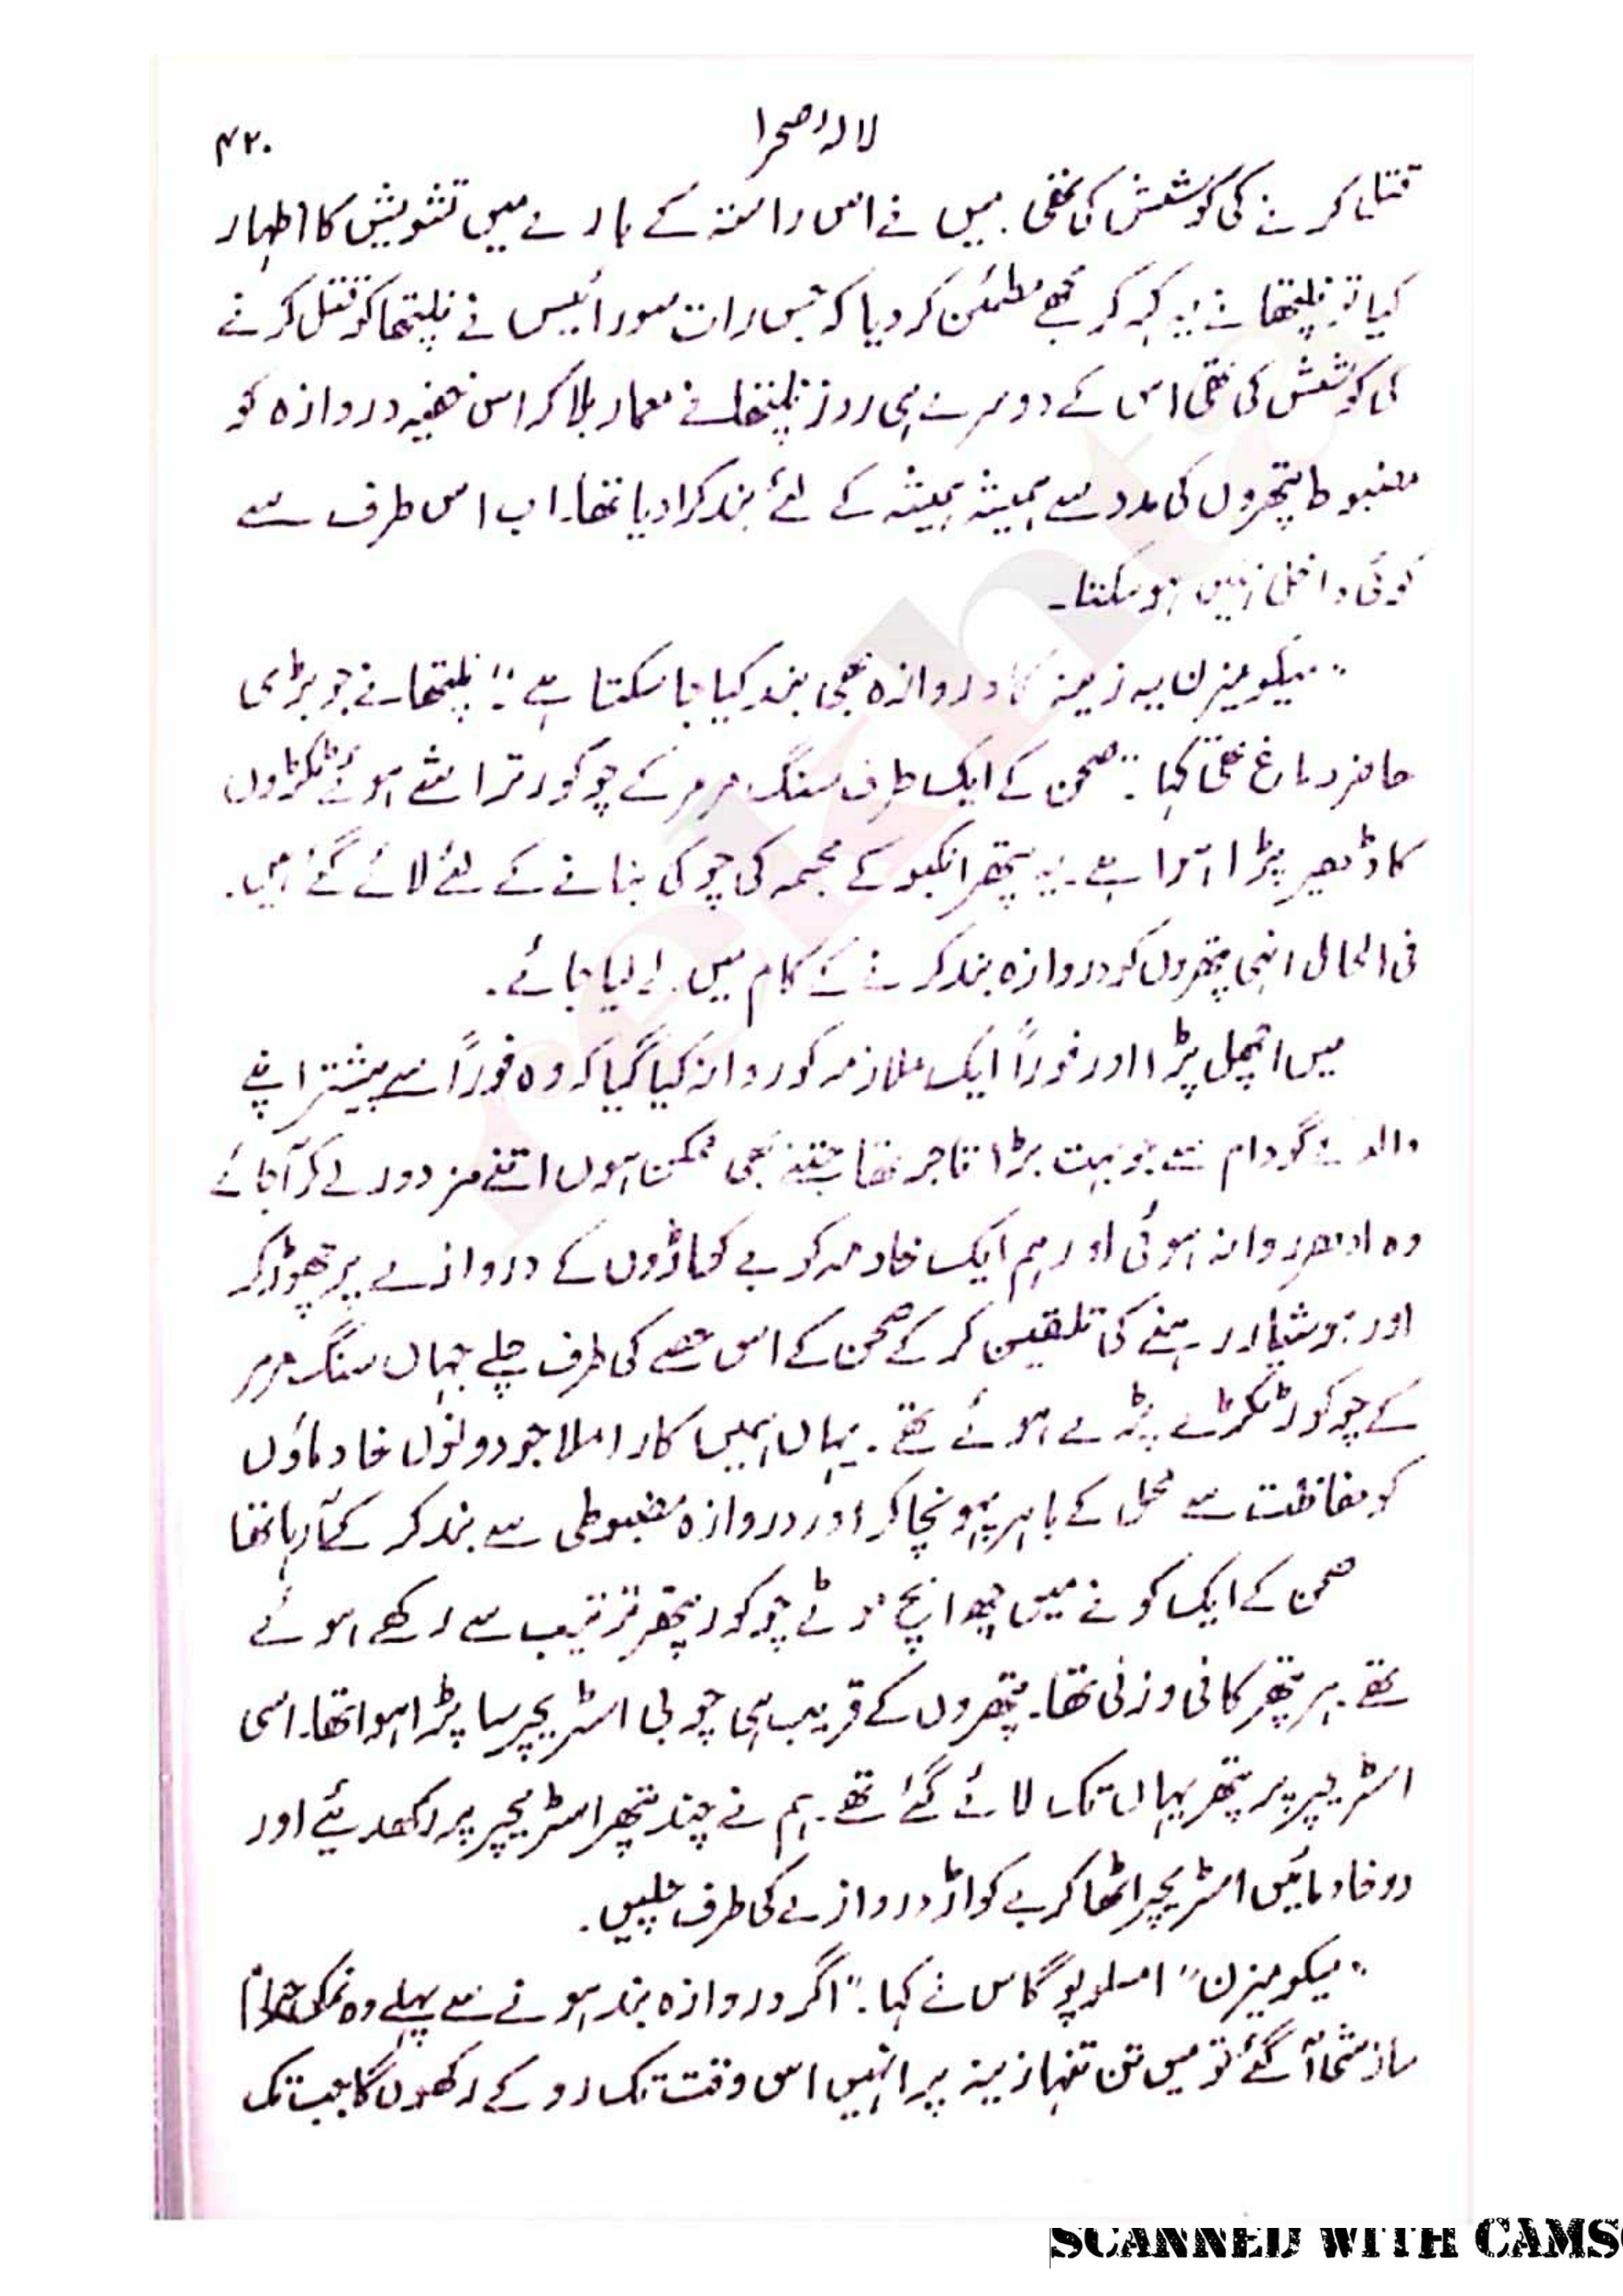 لالۂ صحرا
۴۲۰
قتل کرنے کی کوشش کی تھی. میں نے اس راستہ کے بارے میں تشویش کا اظہار
کیا تو نلیتھا نے یہ کہہ کر مجھے مطمئن کر دیا کہ جس رات سورائیس نے نلیتھا کو قتل کرنے
کی کوشش کی تھی اس کے دوسرے ہی روز نلیتھا نے معمار بلا کر اس خفیہ دروازہ کو
مضبوط پتھروں کی مدد سے ہمیشہ ہمیشہ کے لئے بند کرا دیا تھا۔ اب اس طرف سے
کوئی داخل نہیں ہو سکتا۔
"میکومیزن یہ زینہ کا دروازہ بھی بند کیا جا سکتا ہے" نلیتھا نے جو بڑی
حاضر دماغ تھی کہا. "صحن کے ایک طرف سنگ مرمر کے چوکور تراشے ہوئے ٹکڑوں
کا ڈھیر پڑا ہوا ہے۔ یہ پتھر انکبو کے مجسمہ کی چوکی بنانے کے لئے لائے گئے ہیں.
فی الحال انہی پتھروں کو دروازہ بند کرنے کے کام میں لے لیا جائے.
میں اچھل پڑا اور فوراً ایک ملازمہ کو روانہ کیا گیا کہ وہ فوراً سے پیشتر اپنے
والد کے گودام سے جو بہت بڑا تاجر تھا جتنے بھی ممکن ہوں اتنے مزدور لے کر آ جائے
وہ ادھر روانہ ہوئی اور ہم ایک خادمہ کو بے کواڑوں کے دروازے پر چھوڑ کر
اور ہوشیار رہنے کی تلقین کر کے صحن کے اس حصے کی طرف چلے جہاں سنگ مرمر
کے چوکور ٹکڑے پڑے ہوئے تھے. یہاں ہمیں کارا ملا جو دونوں خادماؤں
کو حفاظت سے محل کے باہر پہونچا کر اور دروازہ مضبوطی سے بند کر کے آ رہا تھا
صحن کے ایک کونے میں چھ انچ موٹے چوکور پتھر ترتیب سے رکھے ہوئے
تھے. ہر پتھر کافی وزنی تھا۔ پتھروں کے قریب ہی چوبی اسٹریچر سا پڑا ہوا تھا۔ اسی
اسٹریچر پر پتھر یہاں تک لائے گئے تھے. ہم نے چند پتھر اسٹریچر پر رکھ دیئے اور
دو خادمائیں اسٹریچر اٹھا کر بے کواڑ دروازے کی طرف چلیں.
"میکومیزن" امسلوپوگاس نے کہا. "اگر دروازہ بند ہونے سے پہلے وہ نمک حرام
سازشی آ گئے تو میں تن تنہا زینہ پر انہیں اس وقت تک روکے رکھوں گا جب تک
rekhta
SCANNED WITH CAMS